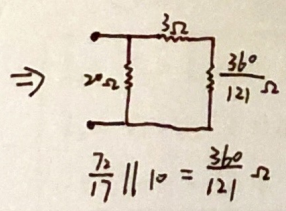 3Ω
⇒
20Ω
360/121 Ω
72/17 || 10 = 360/121 Ω